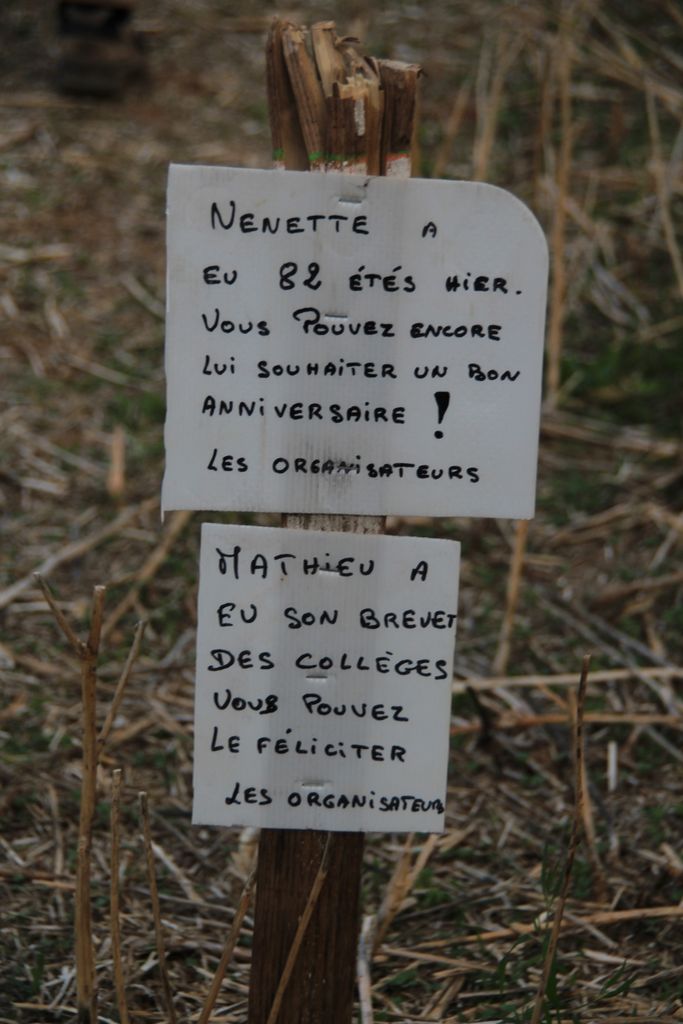 NENETTE A
EU 82 ÉTÉS HIER.
VOUS POUVEZ ENCORE
LUI SOUHAITER UN BON
ANNIVERSAIRE !
LES ORGANISATEURS
MATHIEU A
EU SON BREVET
DES COLLÈGES
VOUS POUVEZ
LE FÉLICITER
LES ORGANISATEURS